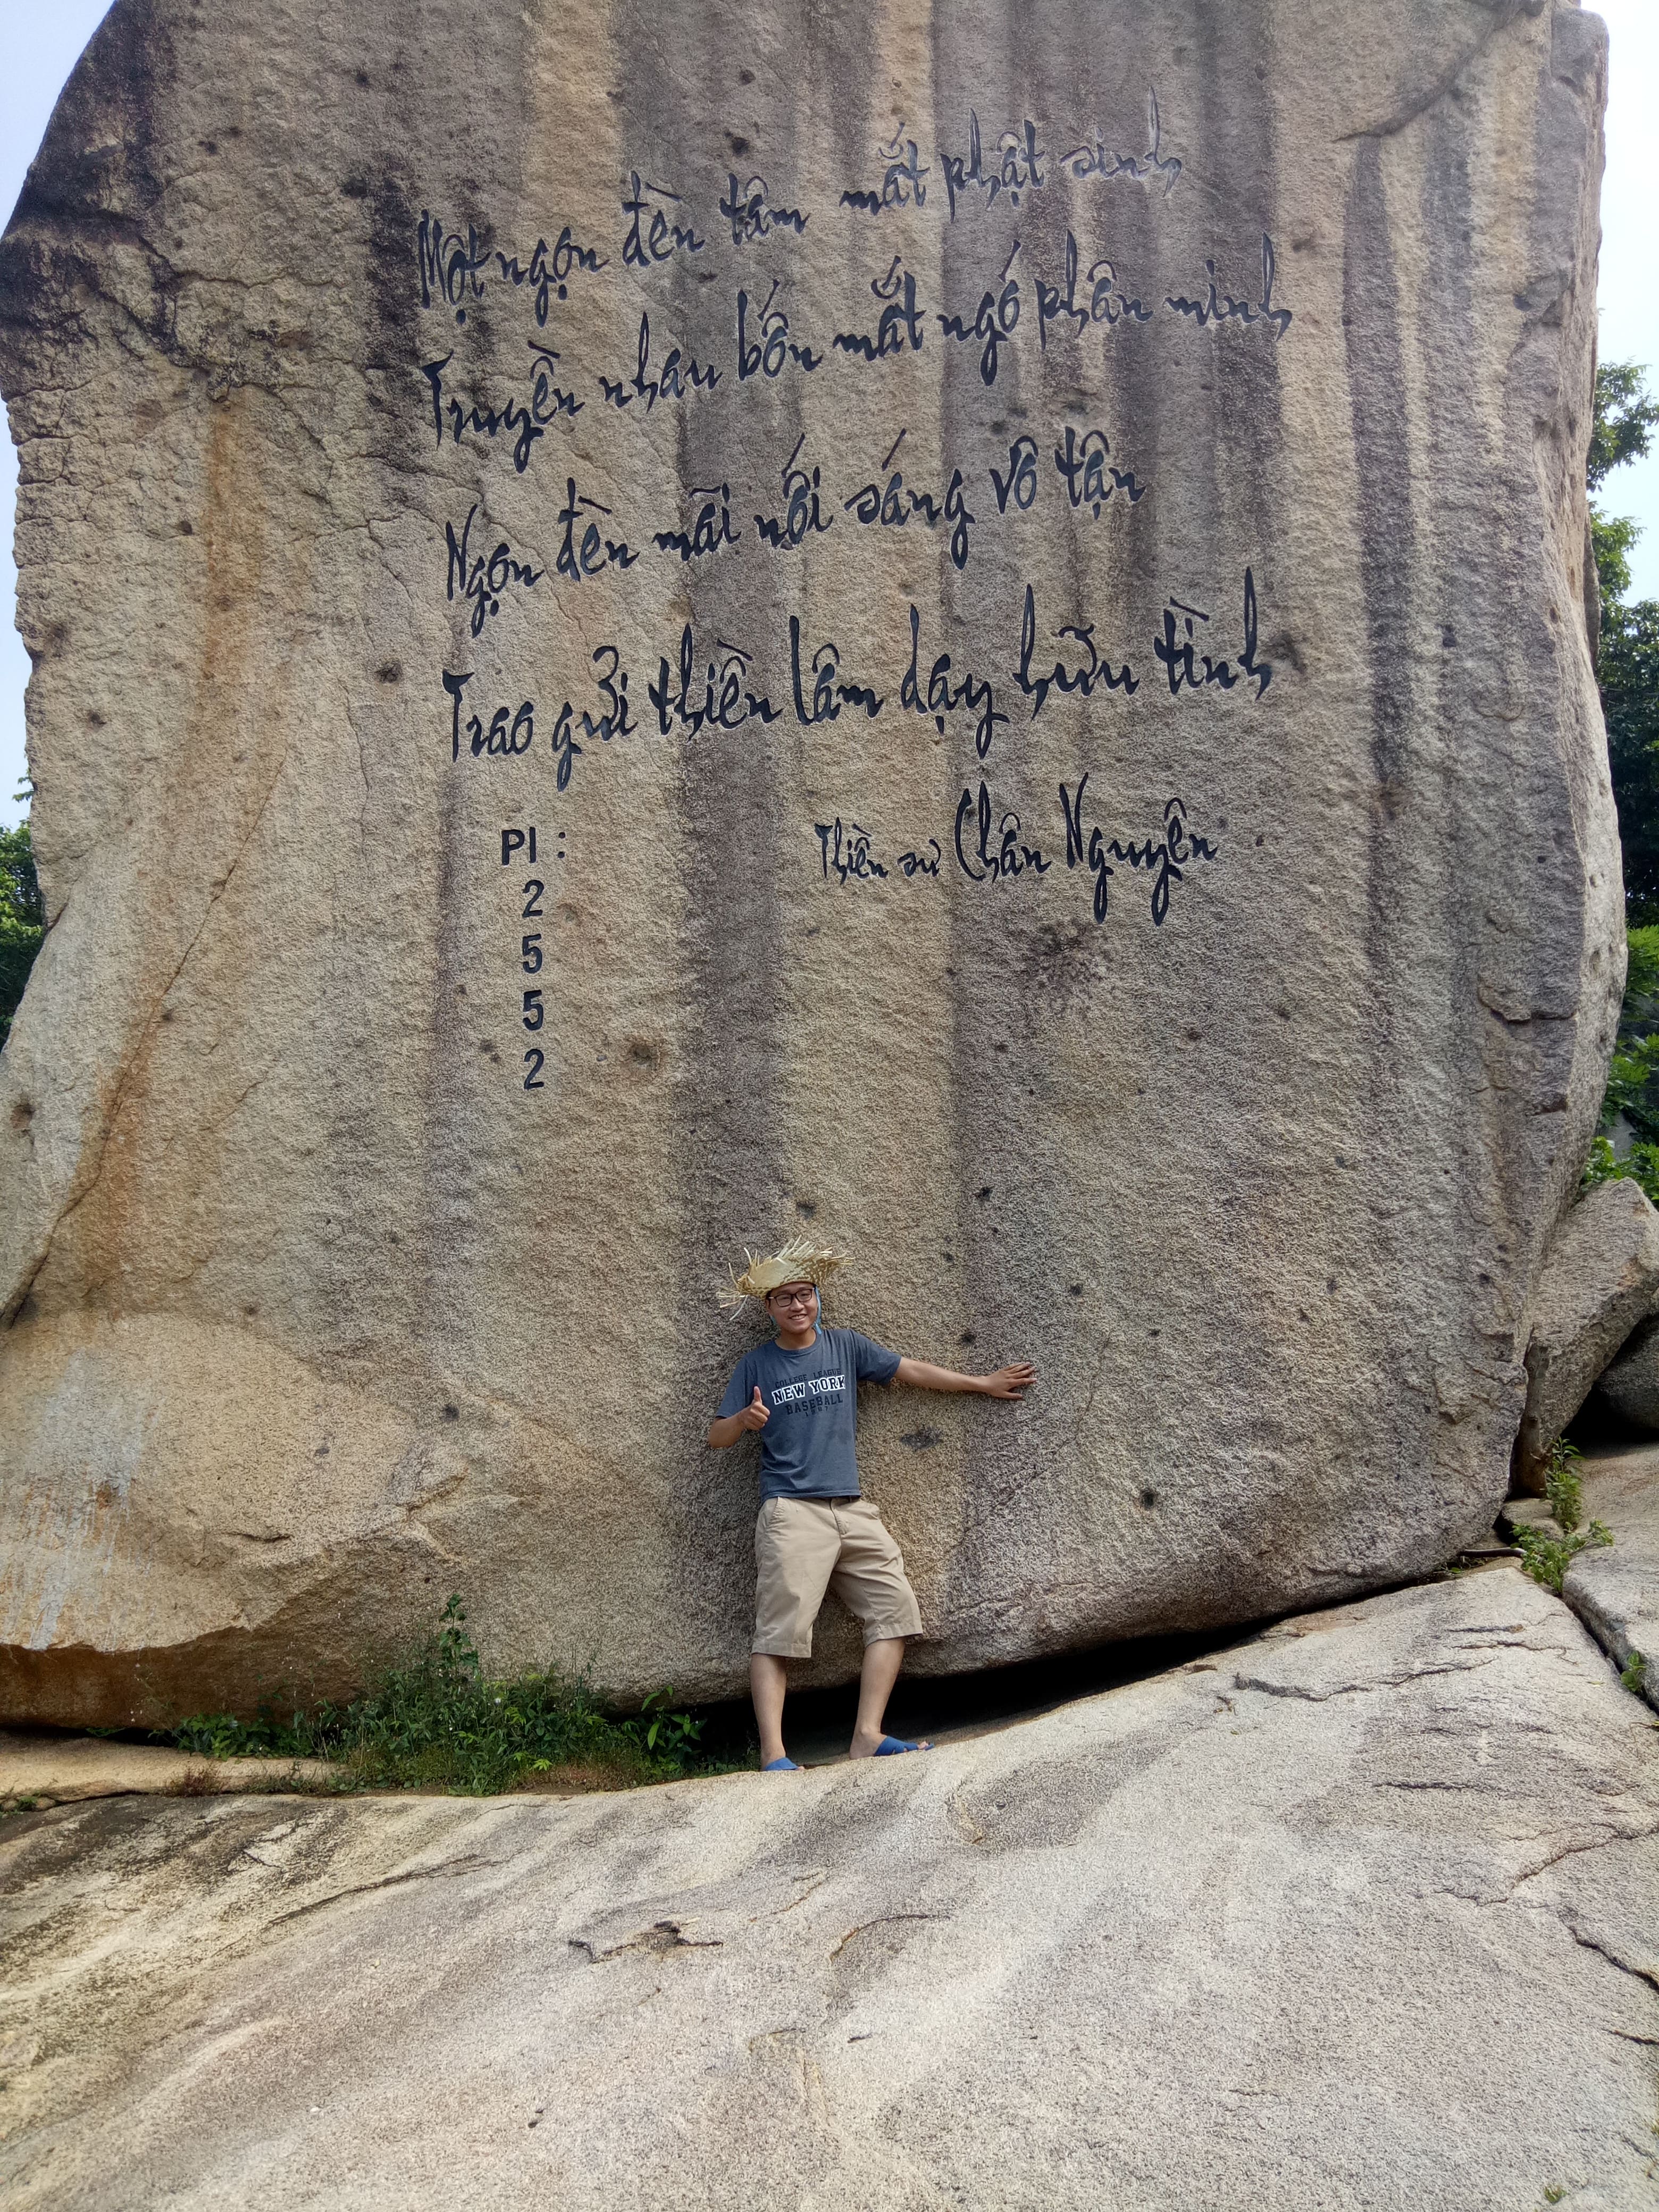 Một ngọn đèn tâm mắt phật sinh
Truyền nhau bốn mắt ngó phân minh
Ngọn đèn mãi nối sáng vô tận
Trao gửi thiền lâm dạy hữu tình
Thiền sư Chân Nguyên
Pl :
2
5
5
2
COLLEGE LEAGUE
NEW YORK
BASEBALL